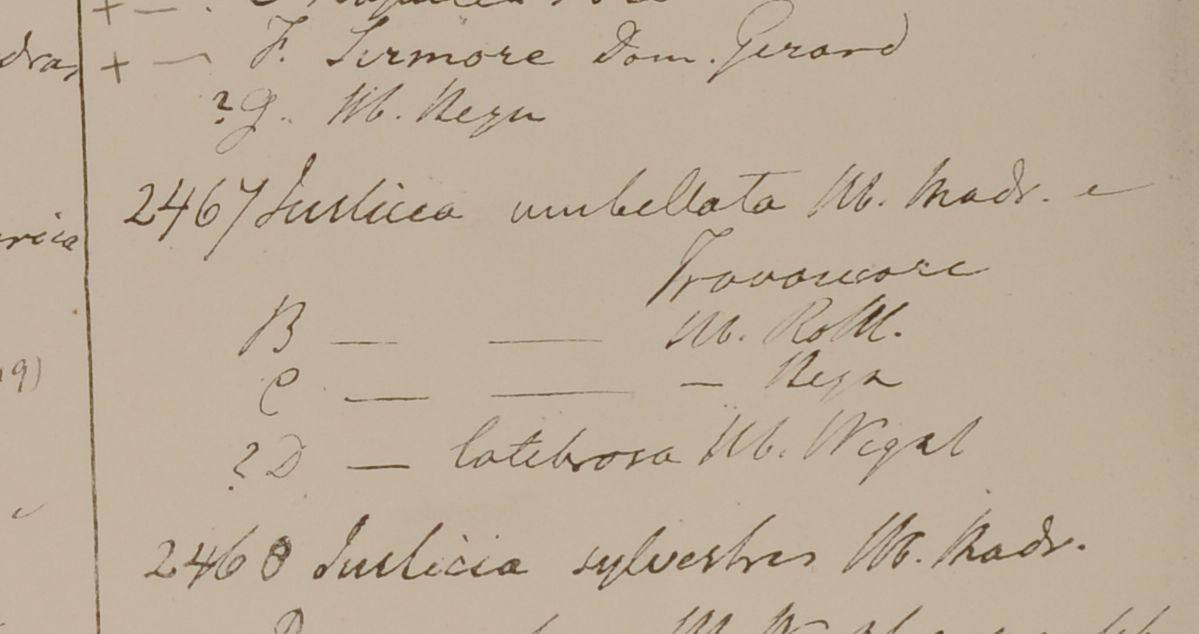 + — F. Sirmore Dom. Gerard
? G. Hb. Heyn
2467 Justicia umbellata Hb. Madr. e
Travancore
B — — Hb. Rottl.
C — — — Heyn
? D — latebrosa Hb. Wight
2468 Justicia sylvestris Hb. Madr.